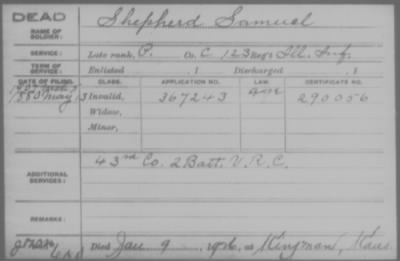 DEAD
NAME OF SOLDIER: Shepherd Samuel
SERVICE: Late rank, P. Co. C 123 Reg't Ill. Inf.
TERM OF SERVICE: Enlisted , 1 Discharged , 1
DATE OF FILING. CLASS. APPLICATION NO. LAW. CERTIFICATE NO.
May 13 Invalid, 367243 290056
Widow,
Minor,
ADDITIONAL SERVICES: 43rd Co. 2 Batt. V. R. C.
REMARKS:
Died Jan. 9, 1926, at Kingman, Kans